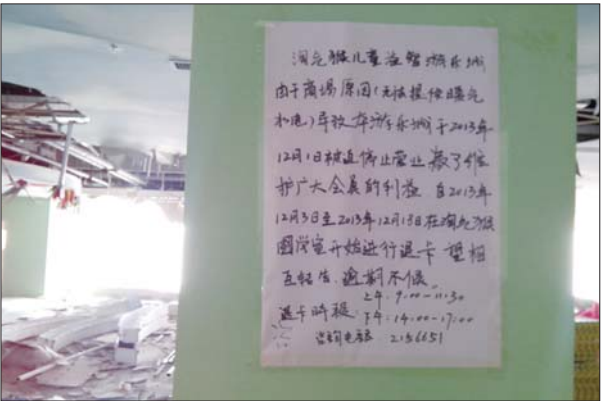 淘气猴儿童益智游乐城
由于商场原因(无法提供暖气
水电)导致本游乐城于2013年
12月1日被迫停止营业 为了维
护广大会员的利益 自2013年
12月3日至2013年12月13日在淘气猴
图学室开始进行退卡 望相
互转告.逾期不候。
退卡时段:上午:9:00-11:30
下午:14:00-17:00
咨询电话 2156651